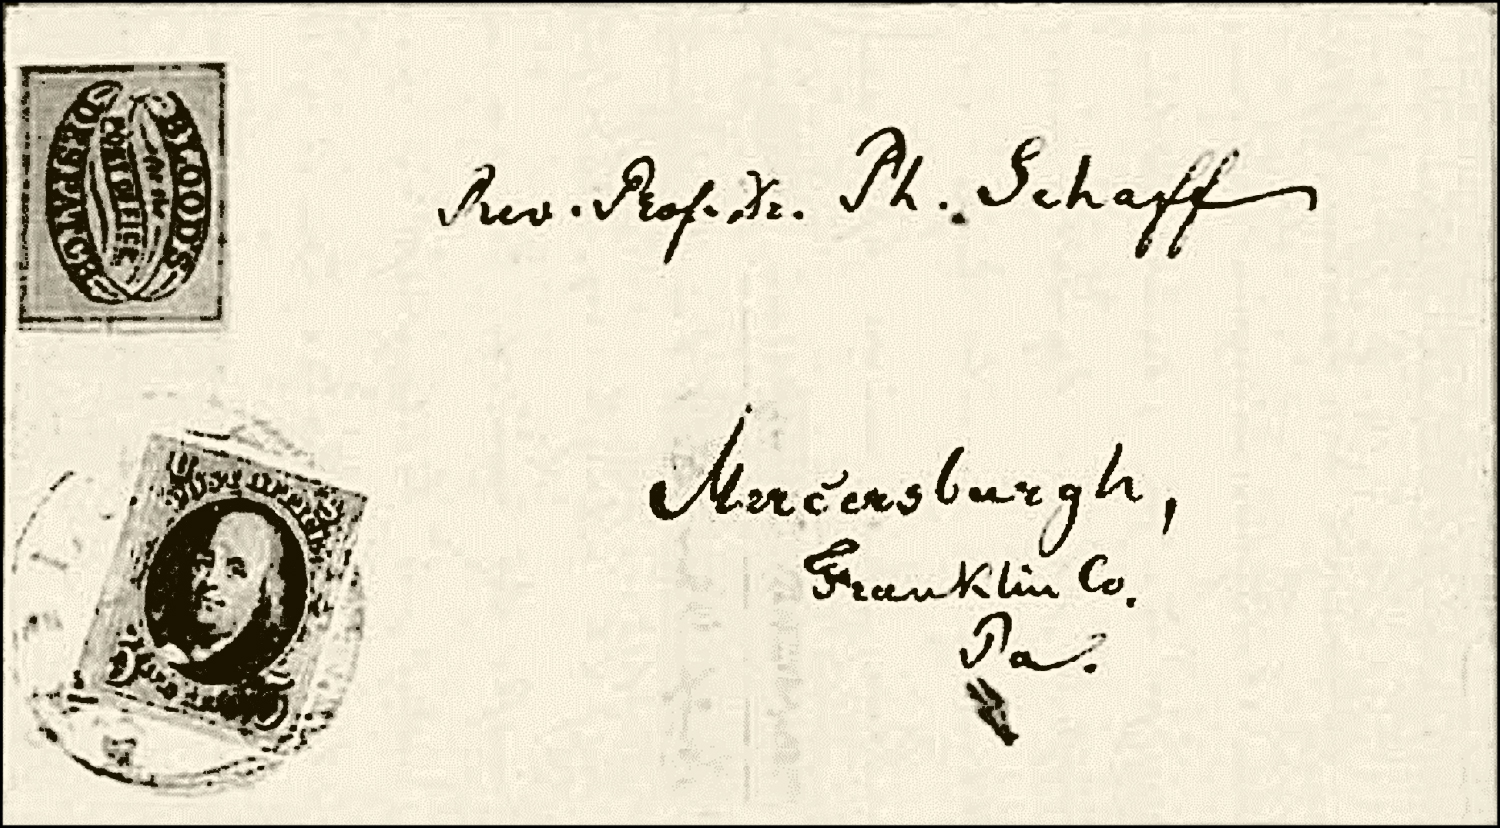 BLOOD'S
for the
POST OFFICE
DESPATCH
Rev. Prof. Dr. Ph. Schaff
POST OFFICE
FIVE CENTS
Mercersburgh,
Franklin Co.
Pa.